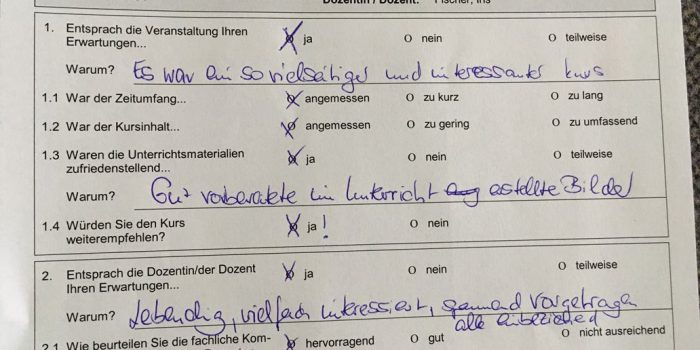 Dozentin / Dozent: Fischer, Iris
1. Entsprach die Veranstaltung Ihren Erwartungen... ja O nein O teilweise
Warum? Es war ein so vielseitiger und interessanter Kurs
1.1 War der Zeitumfang... angemessen O zu kurz O zu lang
1.2 War der Kursinhalt... angemessen O zu gering O zu umfassend
1.3 Waren die Unterrichtsmaterialien zufriedenstellend... ja O nein O teilweise
Warum? Gut vorbereitete im Unterricht erstellte Bilder
1.4 Würden Sie den Kurs weiterempfehlen? ja! O nein
2. Entsprach die Dozentin/der Dozent Ihren Erwartungen... ja O nein O teilweise
Warum? Lebendig, vielfach interessiert, spannend vorgetragen
alle einbeziehend
2.1 Wie beurteilen Sie die fachliche Kom- hervorragend O gut O nicht ausreichend